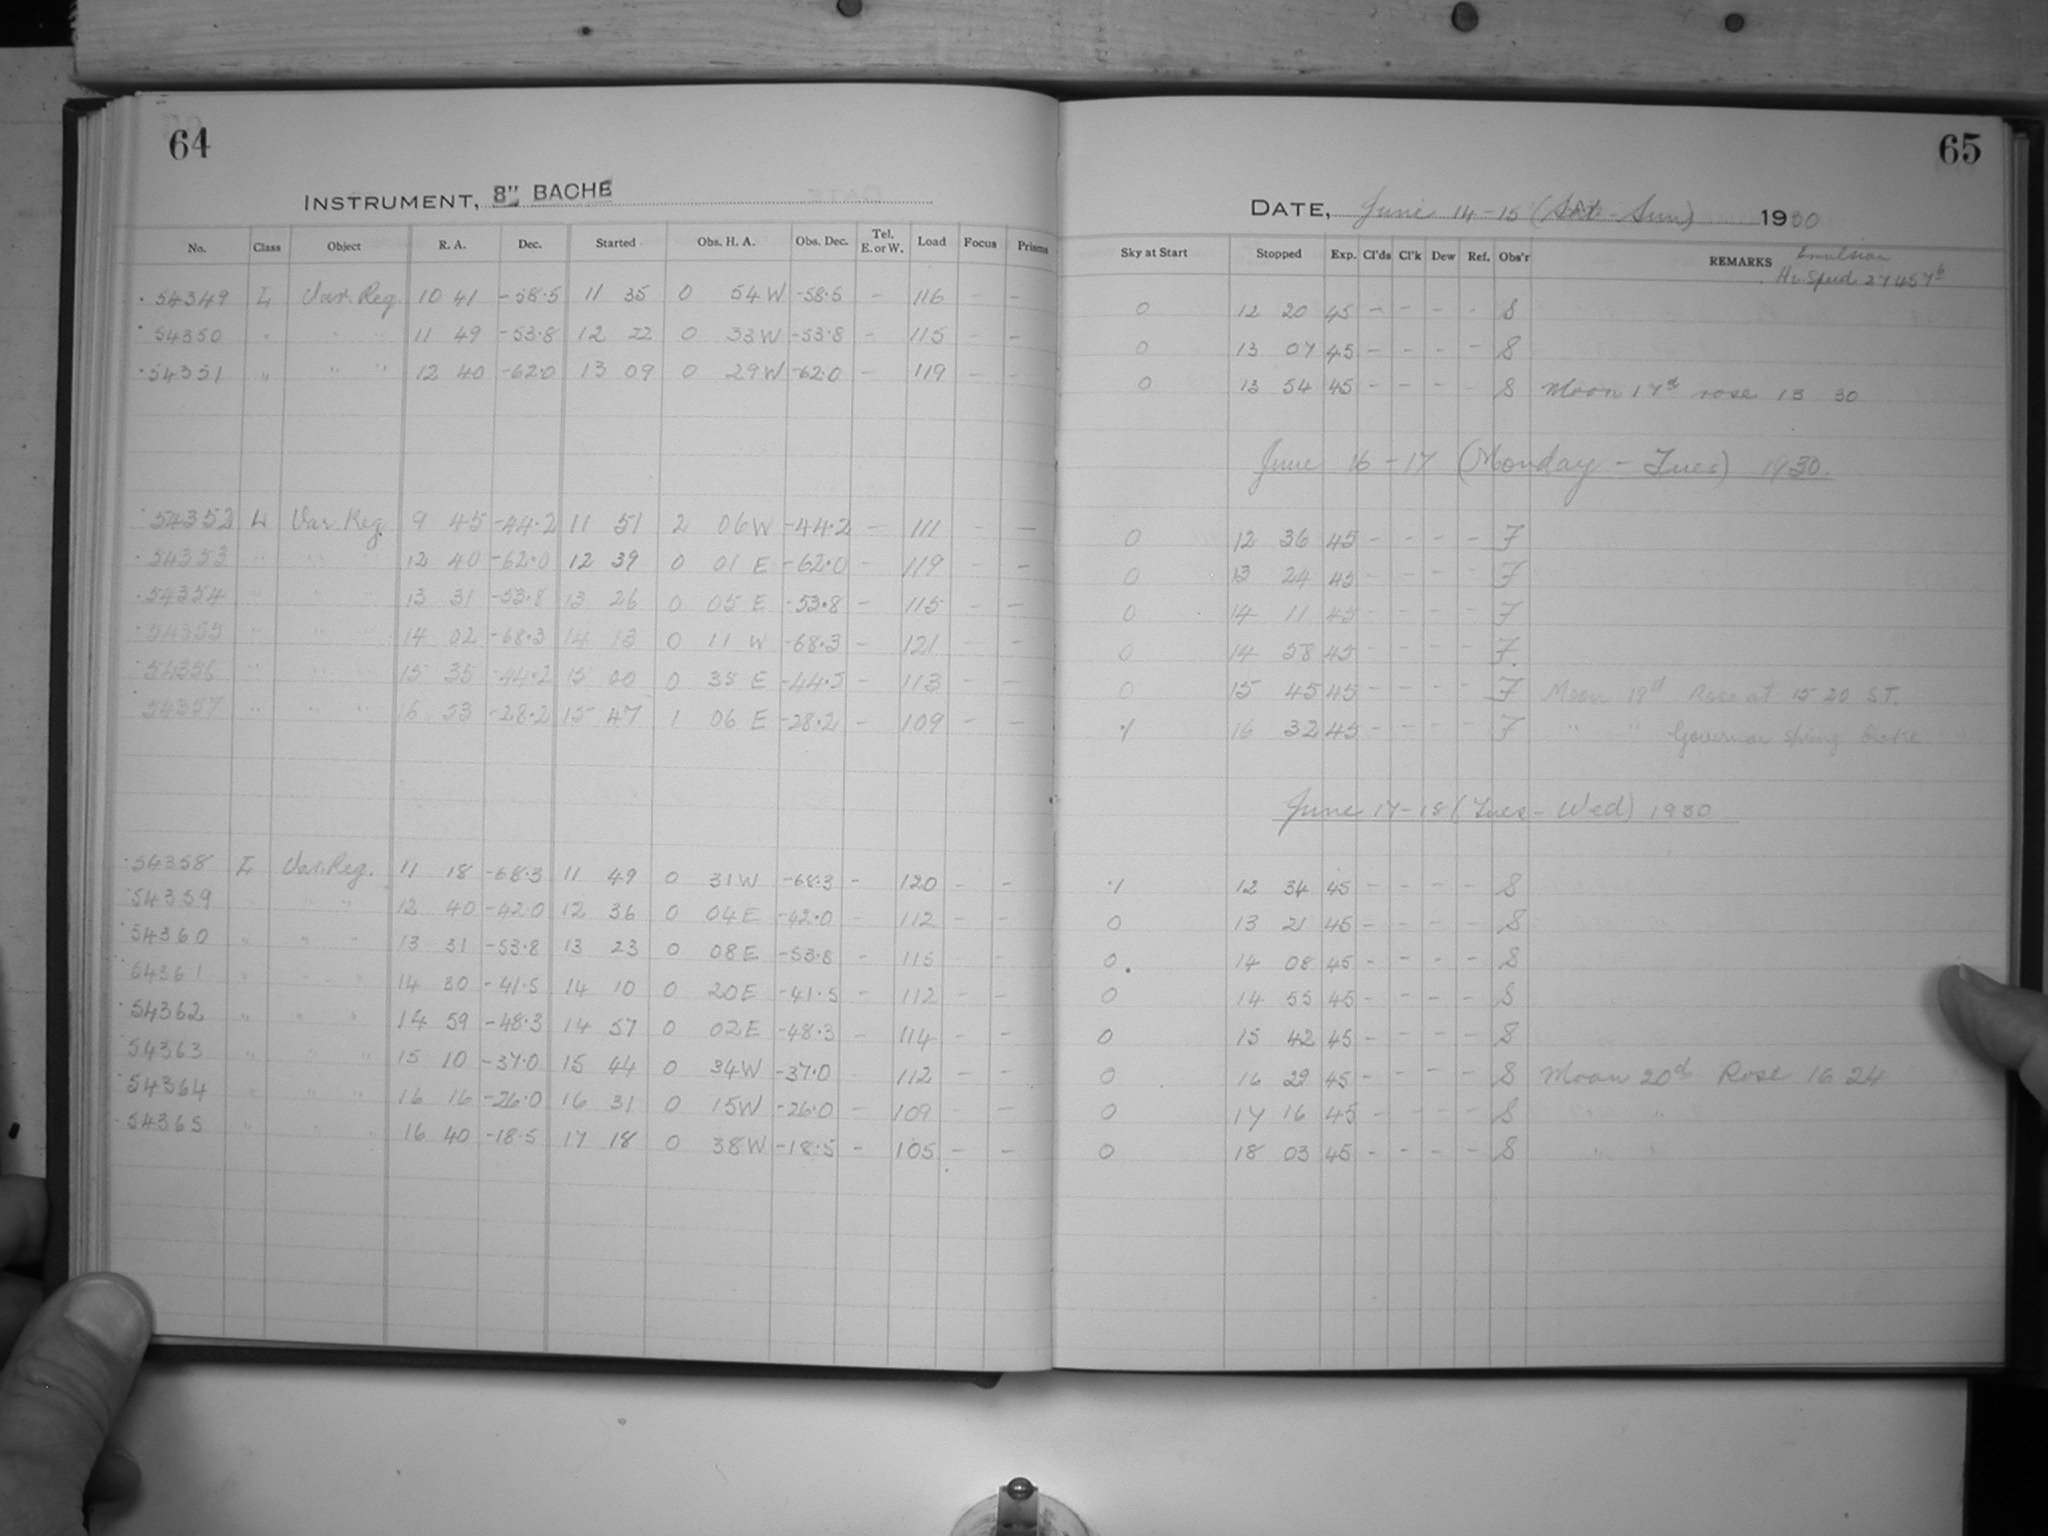 64
INSTRUMENT, 8" BACHE
No. Class Object R. A. Dec. Started Obs. H. A. Obs. Dec. Tel. E. or W. Load Focus Prisms
54349 L Var. Reg. 10 41 -58.5 11 35 0 54 W -58.5 - 116 - -
54350 " " " 11 49 -53.8 12 22 0 33 W -53.8 - 115 - -
54351 " " " 12 40 -62.0 13 09 0 29 W -62.0 - 119 - -
54352 L Var. Reg. 9 45 -44.2 11 51 2 06 W -44.2 - 111 - -
54353 " " " 12 40 -62.0 12 39 0 01 E -62.0 - 119 - -
54354 " " " 13 31 -53.8 13 26 0 05 E -53.8 - 115 - -
54355 " " " 14 02 -68.3 14 13 0 11 W -68.3 - 121 - -
54356 " " " 15 35 -44.2 15 00 0 35 E -44.5 - 113 - -
54357 " " " 16 53 -28.2 15 47 1 06 E -28.2 - 109 - -
54358 L Var. Reg. 11 18 -68.3 11 49 0 31 W -68.3 - 120 - -
54359 " " " 12 40 -42.0 12 36 0 04 E -42.0 - 112 - -
54360 " " " 13 31 -53.8 13 23 0 08 E -53.8 - 115 - -
54361 " " " 14 30 -41.5 14 10 0 20 E -41.5 - 112 - -
54362 " " " 14 59 -48.3 14 57 0 02 E -48.3 - 114 - -
54363 " " " 15 10 -37.0 15 44 0 34 W -37.0 - 112 - -
54364 " " " 16 16 -26.0 16 31 0 15 W -26.0 - 109 - -
54365 " " " 16 40 -18.5 17 18 0 38 W -18.5 - 105 - -
65
DATE, June 14-15 (Sat - Sun) 1930
Sky at Start Stopped Exp. Cl'ds Cl'k Dew Ref. Obs'r REMARKS Emulsion
Hi Speed 27457
0 12 20 45 - - - - S
0 13 07 45 - - - - S
0 13 54 45 - - - - S Moon 17d rose 13 30
June 16-17 (Monday - Tues) 1930.
0 12 36 45 - - - - F
0 13 24 45 - - - - F
0 14 11 45 - - - - F
0 14 58 45 - - - - F.
0 15 45 45 - - - - F Moon 19d Rose at 15 20 ST.
.1 16 32 45 - - - - F " " Governor spring broke
June 17-18 (Tues - Wed) 1930
.1 12 34 45 - - - - S
0 13 21 45 - - - - S
0 14 08 45 - - - - S
0 14 55 45 - - - - S
0 15 42 45 - - - - S
0 16 29 45 - - - - S Moon 20d Rose 16 24
0 17 16 45 - - - - S " "
0 18 03 45 - - - - S " "